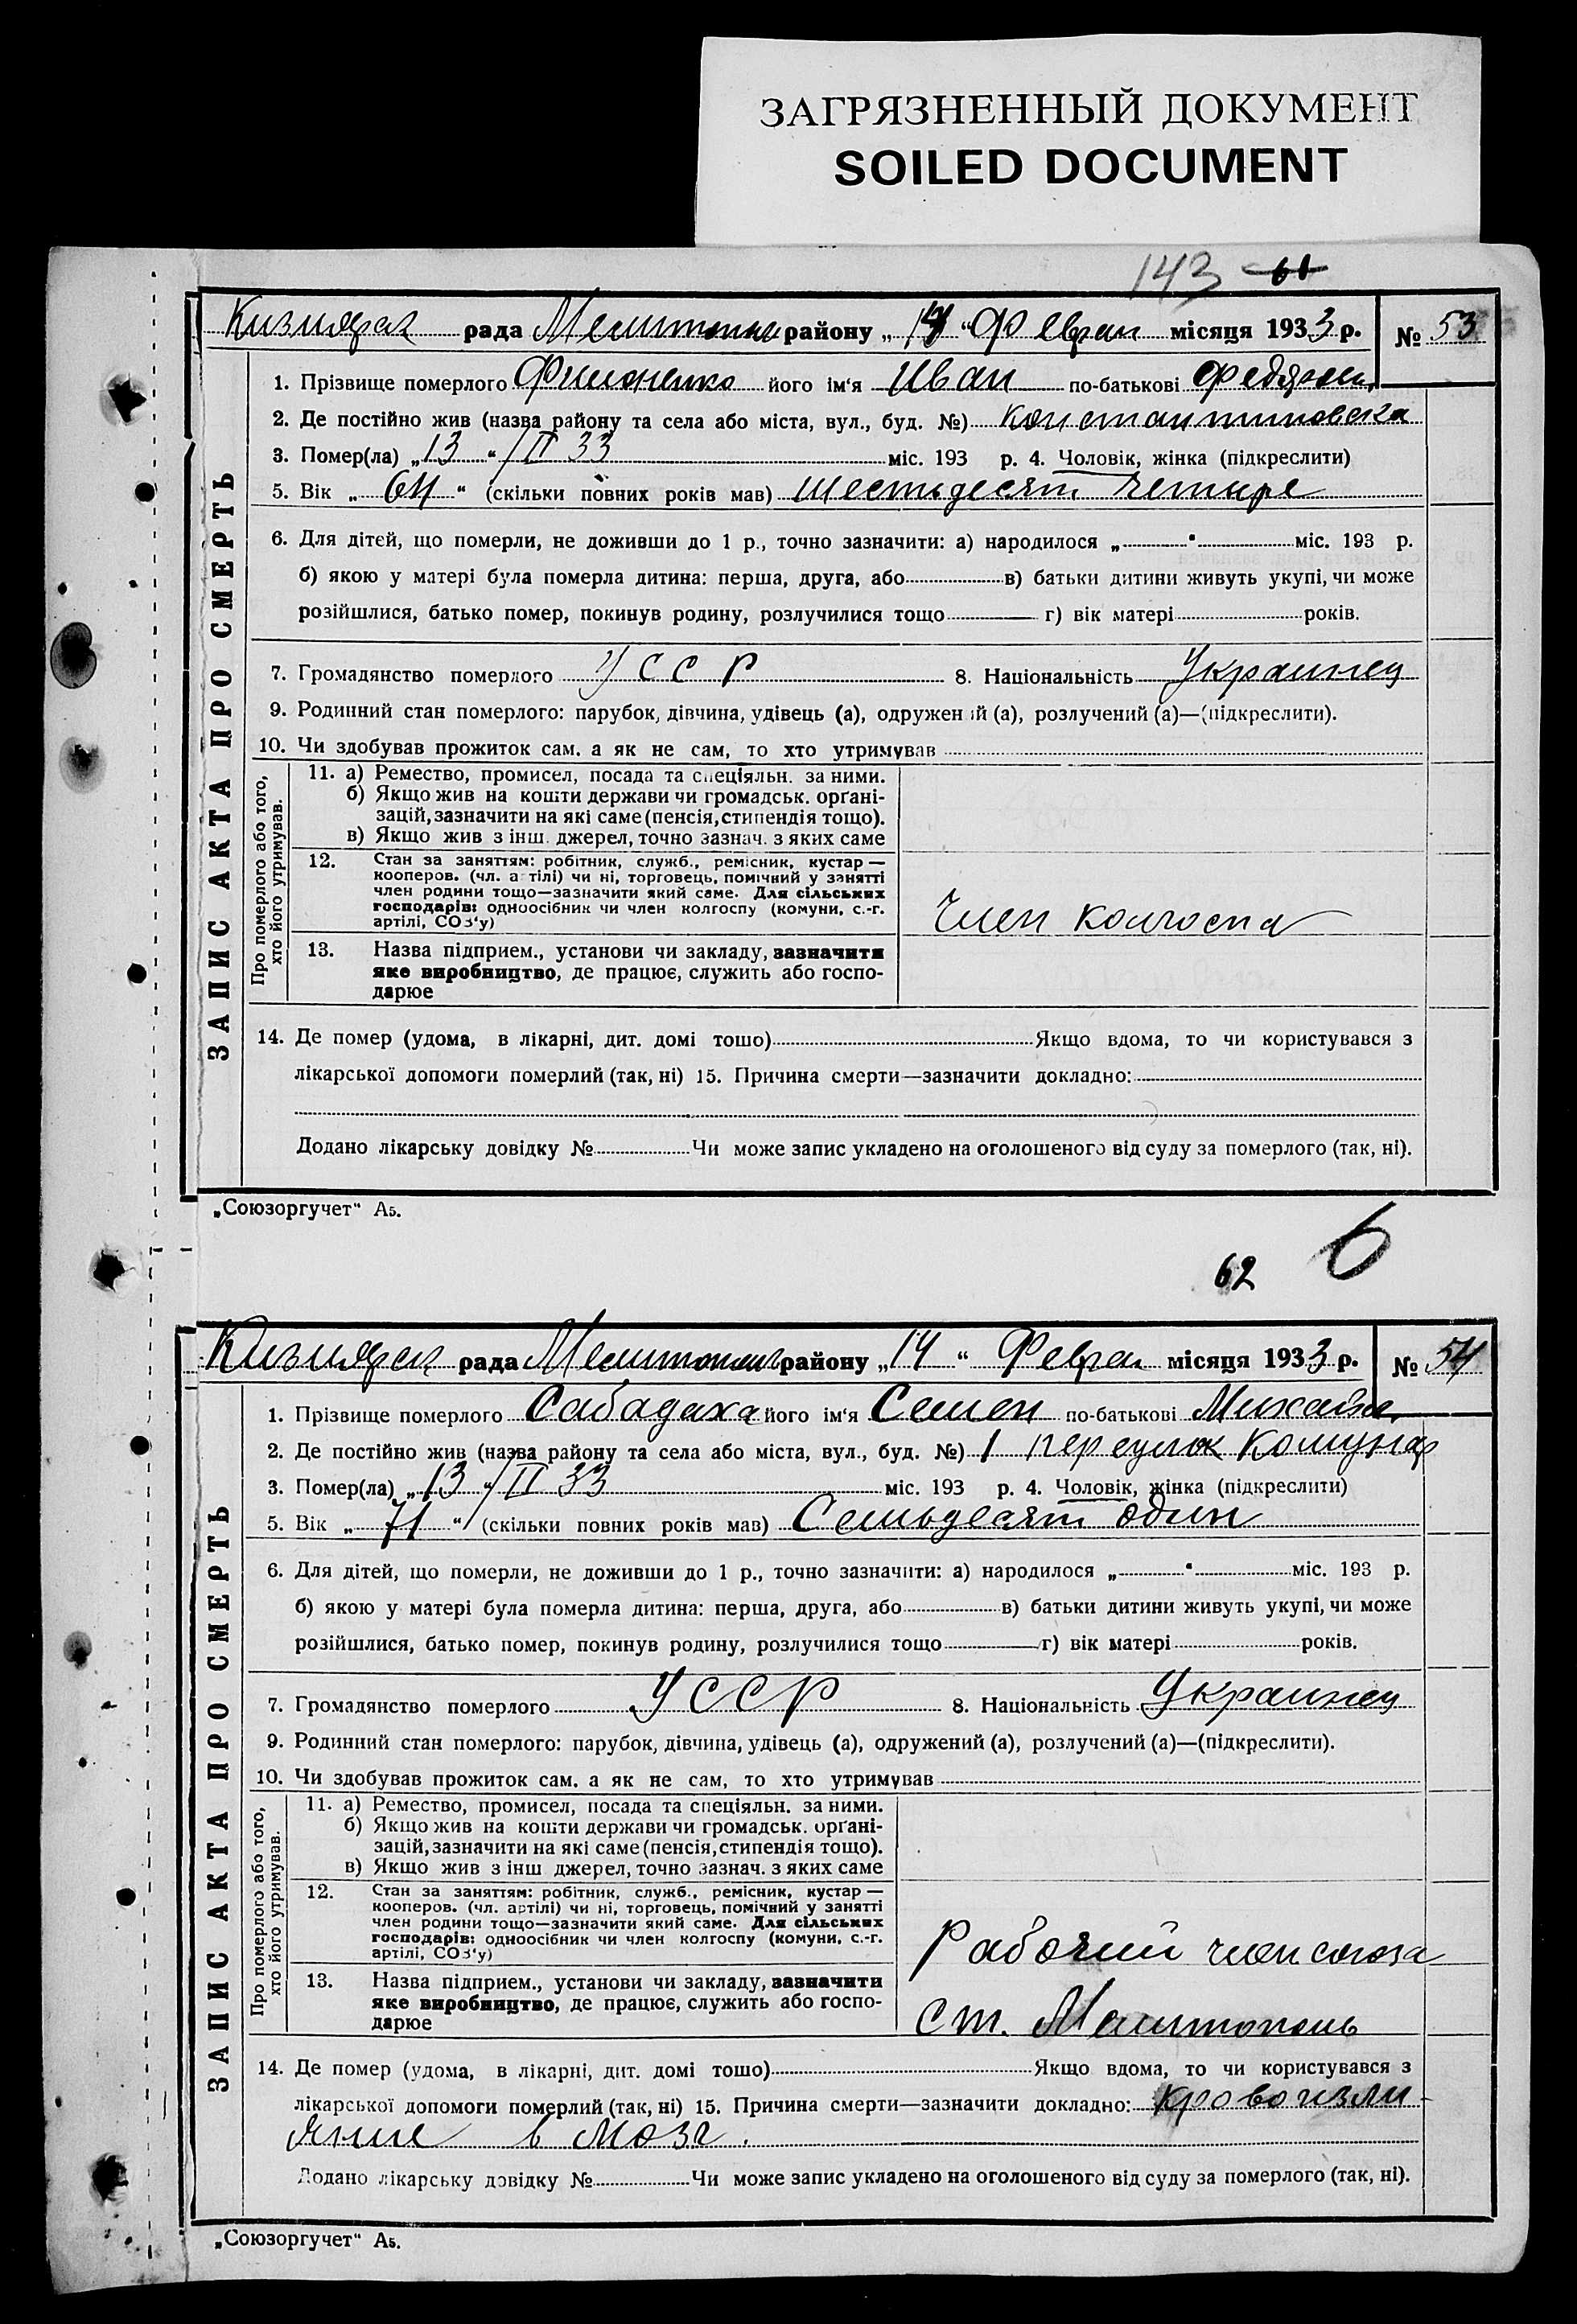 ЗАГРЯЗНЕННЫЙ ДОКУМЕНТ
SOILED DOCUMENT
143 61
Кизиярск рада Мелитополь району „14“ Феврал місяця 1933 р. № 53
1. Прізвище померлого Филоненко його ім‘я Иван по-батькові
2. Де постійно жив (назва району та села або міста, вул., буд. №) Константиновска
3. Помер(ла) „13“ / II 33 міс. 193 р. 4. Чоловік, жінка (підкреслити)
5. Вік „64“ (скільки повних років мав) шестьдесят четыре
6. Для дітей, що померли, не доживши до 1 р., точно зазначити: а) народилося „ “ міс. 193 р.
б) якою у матері була померла дитина: перша, друга, або в) батьки дитини живуть укупі, чи може
розійшлися, батько помер, покинув родину, розлучилися тощо г) вік матері років.
7. Громадянство померлого УССР 8. Національність Украинец
9. Родинний стан померлого: парубок, дівчина, удівець (а), одружений (а), розлучений (а)—(підкреслити).
10. Чи здобував прожиток сам. а як не сам, то хто утримував
Про померлого або того,
хто його утримував.
11. а) Ремество, промисел, посада та спеціяльн. за ними.
б) Якщо жив на кошти держави чи громадськ. орґані-
зацій, зазначити на які саме (пенсія, стипендія тощо).
в) Якщо жив з інш. джерел, точно зазнач. з яких саме
12. Стан за заняттям: робітник, служб., ремісник, кустар —
кооперов. (чл. артілі) чи ні, торговець, помічний у занятті
член родини тощо—зазначити який саме. Для сільських
господарів: одноосібник чи член колгоспу (комуни, с.-г.
артілі, СОЗ‘у)
Член колгоспа
13. Назва підприєм., установи чи закладу, зазначити
яке виробництво, де працює, служить або госпо-
дарює
14. Де помер (удома, в лікарні, дит. домі тощо) Якщо вдома, то чи користувався з
лікарської допомоги померлий (так, ні) 15. Причина смерти—зазначити докладно:
Додано лікарську довідку № Чи може запис укладено на оголошеного від суду за померлого (так, ні).
ЗАПИС АКТА ПРО СМЕРТЬ
„Союзоргучет“ А5.
62 6
Кизиярск рада Мелитополь району „14“ Феврал місяця 1933 р. № 54
1. Прізвище померлого Сабадаха його ім‘я Семен по-батькові Михайл.
2. Де постійно жив (назва району та села або міста, вул., буд. №) 1 переулок Комунар
3. Помер(ла) „13“ / II 33 міс. 193 р. 4. Чоловік, жінка (підкреслити)
5. Вік „71“ (скільки повних років мав) Семьдесят один
6. Для дітей, що померли, не доживши до 1 р., точно зазначити: а) народилося „ “ міс. 193 р.
б) якою у матері була померла дитина: перша, друга, або в) батьки дитини живуть укупі, чи може
розійшлися, батько помер, покинув родину, розлучилися тощо г) вік матері років.
7. Громадянство померлого УССР 8. Національність Украинец
9. Родинний стан померлого: парубок, дівчина, удівець (а), одружений (а), розлучений (а)—(підкреслити).
10. Чи здобував прожиток сам. а як не сам, то хто утримував
Про померлого або того,
хто його утримував.
11. а) Ремество, промисел, посада та спеціяльн. за ними.
б) Якщо жив на кошти держави чи громадськ. орґані-
зацій, зазначити на які саме (пенсія, стипендія тощо).
в) Якщо жив з інш джерел, точно зазнач. з яких саме
12. Стан за заняттям: робітник, служб., ремісник, кустар —
кооперов. (чл. артілі) чи ні, торговець, помічний у занятті
член родини тощо—зазначити який саме. Для сільських
господарів: одноосібник чи член колгоспу (комуни, с.-г.
артілі, СОЗ‘у)
Рабочий член союза
13. Назва підприєм., установи чи закладу, зазначити
яке виробництво, де працює, служить або госпо-
дарює
Ст. Мелитополь
14. Де помер (удома, в лікарні, дит. домі тощо) Якщо вдома, то чи користувався з
лікарської допомоги померлий (так, ні) 15. Причина смерти—зазначити докладно: Кровоизли-
яние в мозг.
Додано лікарську довідку № Чи може запис укладено на оголошеного від суду за померлого (так, ні).
ЗАПИС АКТА ПРО СМЕРТЬ
„Союзоргучет“ А5.